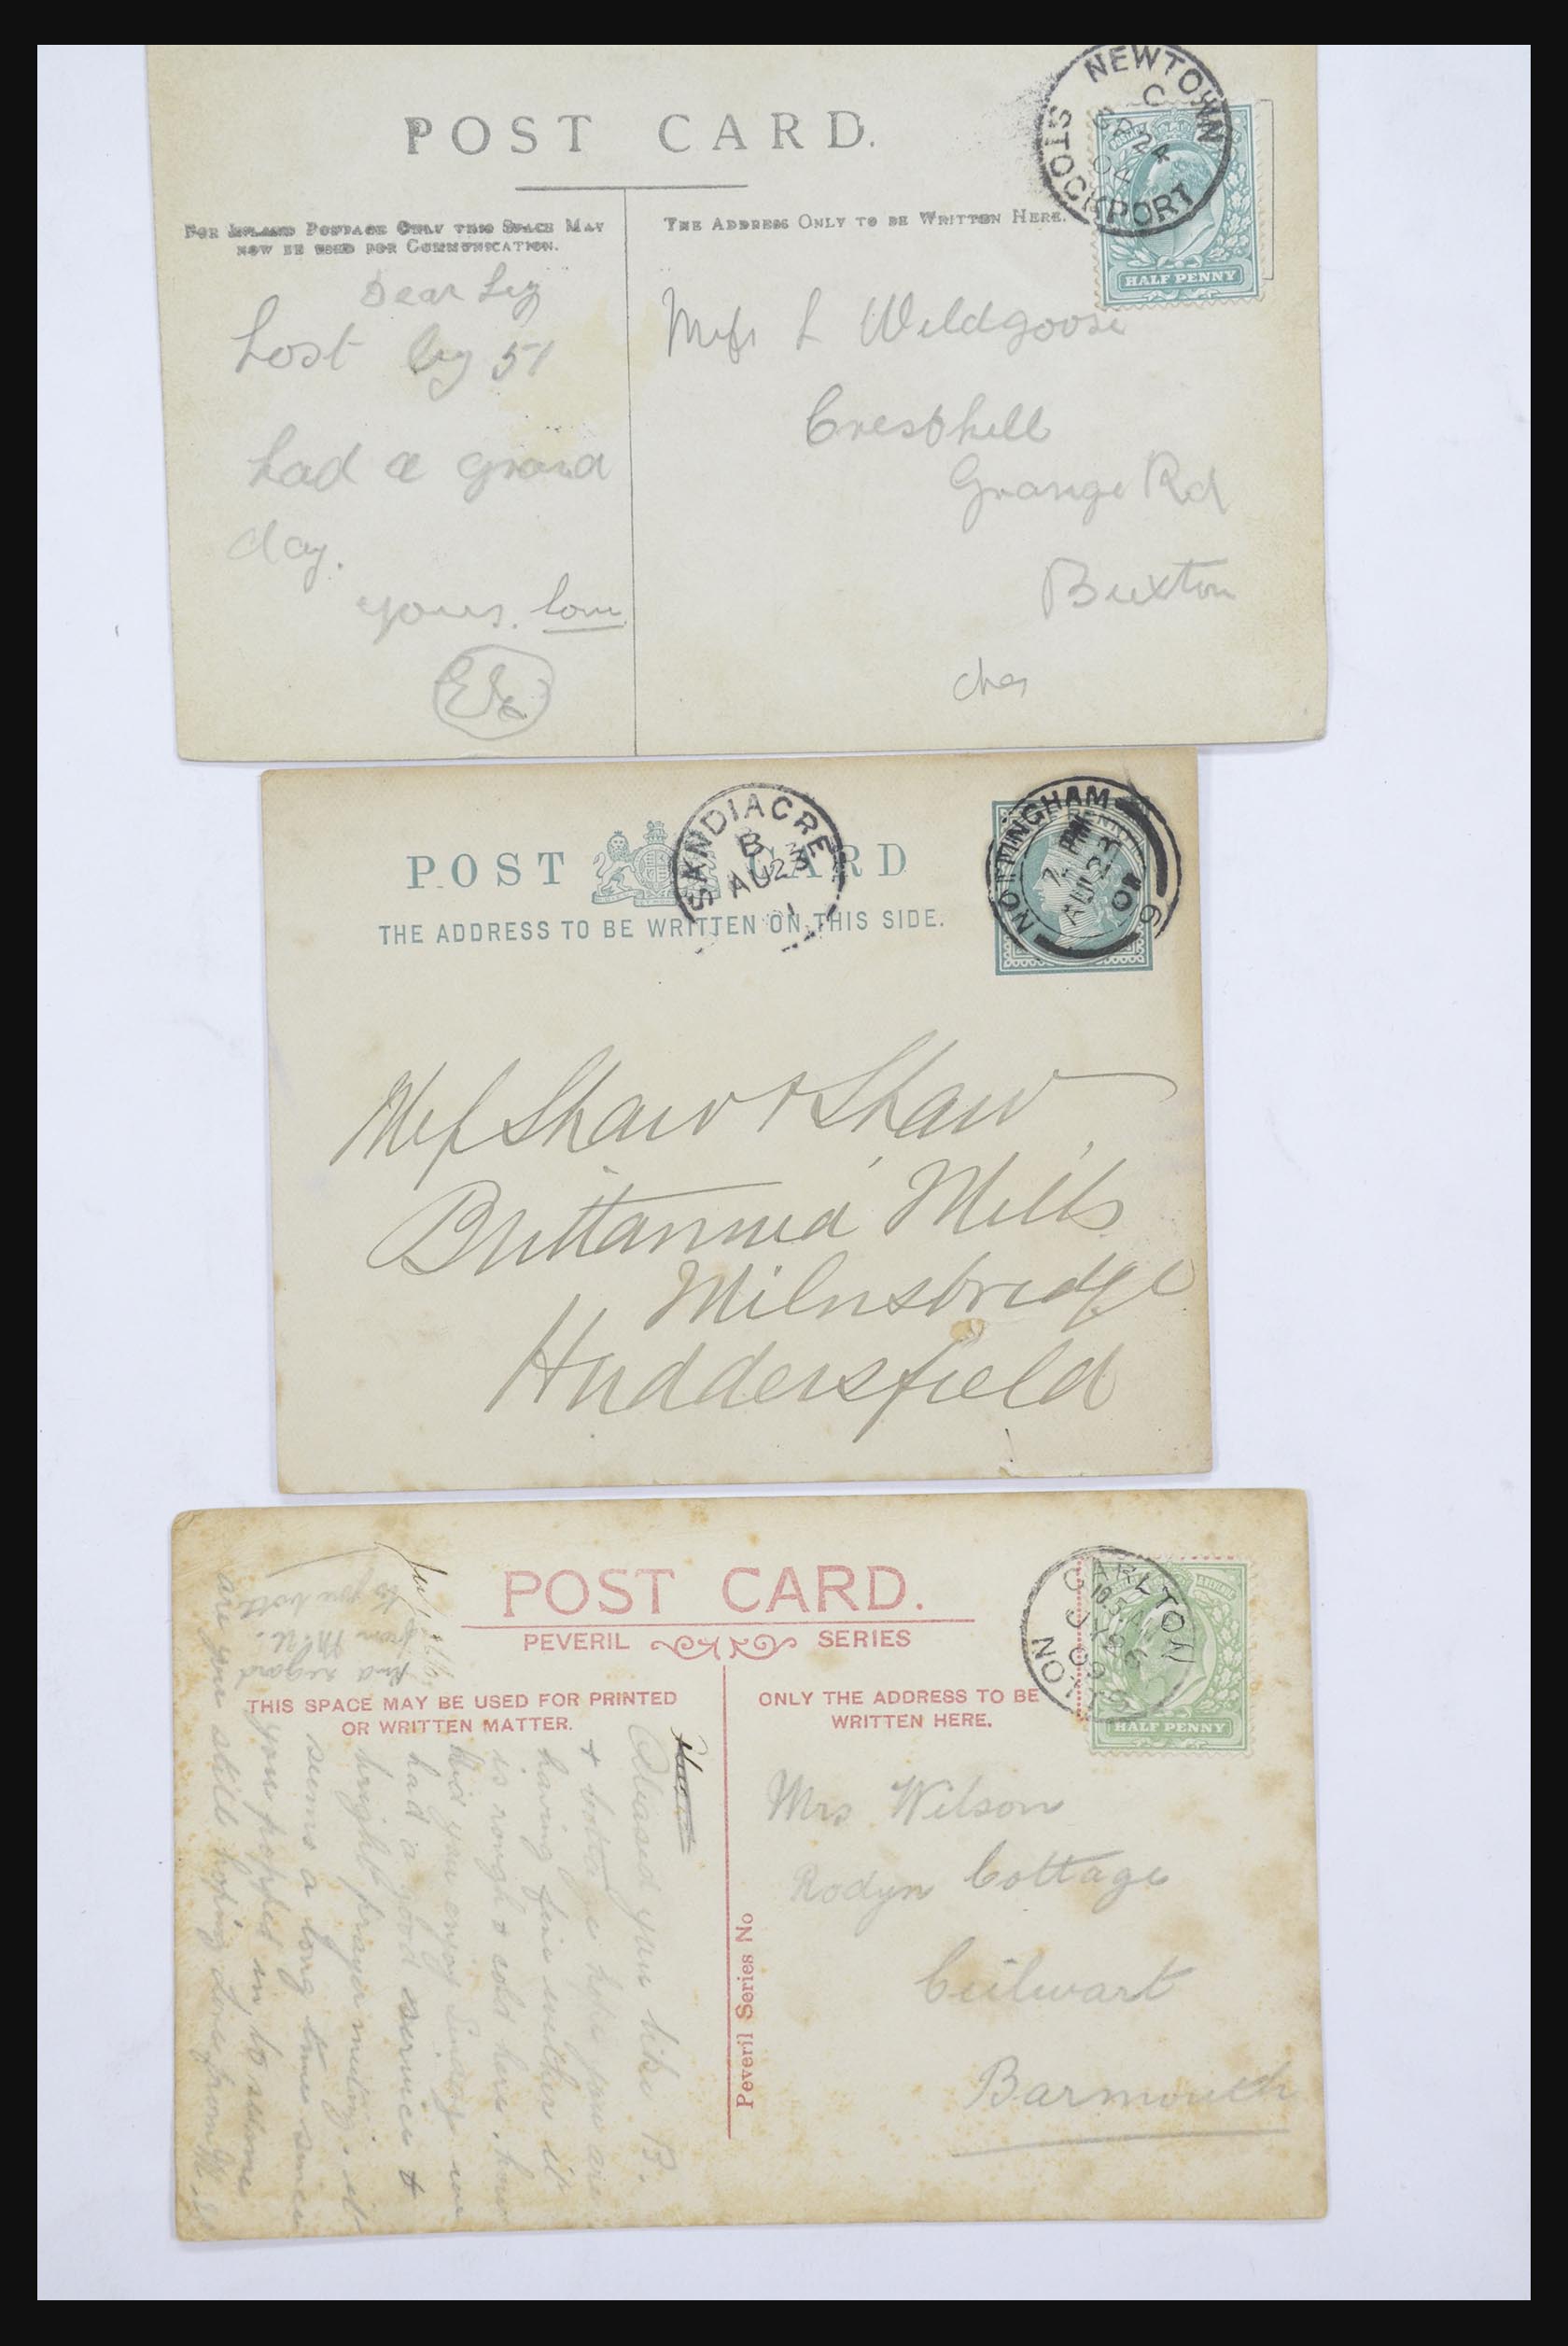 POST CARD.
FOR INLAND POSTAGE ONLY THIS SPACE MAY
NOW BE USED FOR COMMUNICATION.
THE ADDRESS ONLY TO BE WRITTEN HERE.
NEWTOWN
C
24
04
STOCKPORT
HALF PENNY
Dear Liz
Lost by 51
had a grand
day.
yours.
Miss L Wildgoose
Cresthill
Grange Rd
Buxton
POST CARD
THE ADDRESS TO BE WRITTEN ON THIS SIDE.
SANDIACRE
B
AU 23
NOTTINGHAM
AU 23
01
6
Mess Shaw & Shaw
Brittannia Mills
Milnsbridge
Huddersfield
POST CARD.
PEVERIL SERIES
THIS SPACE MAY BE USED FOR PRINTED
OR WRITTEN MATTER.
ONLY THE ADDRESS TO BE
WRITTEN HERE.
CARLTON
HALF PENNY
Peveril Series No
Mrs Wilson
Rodyn Cottage
Barmouth
Pleased you like B.
& hope you are
having fine wether it
is rough & cold here.
you enjoy we
had a good service &
bright prayer meeting. it
seems a long time since
you popped in to
are you still hoping Love from
kind regard
from
to you both